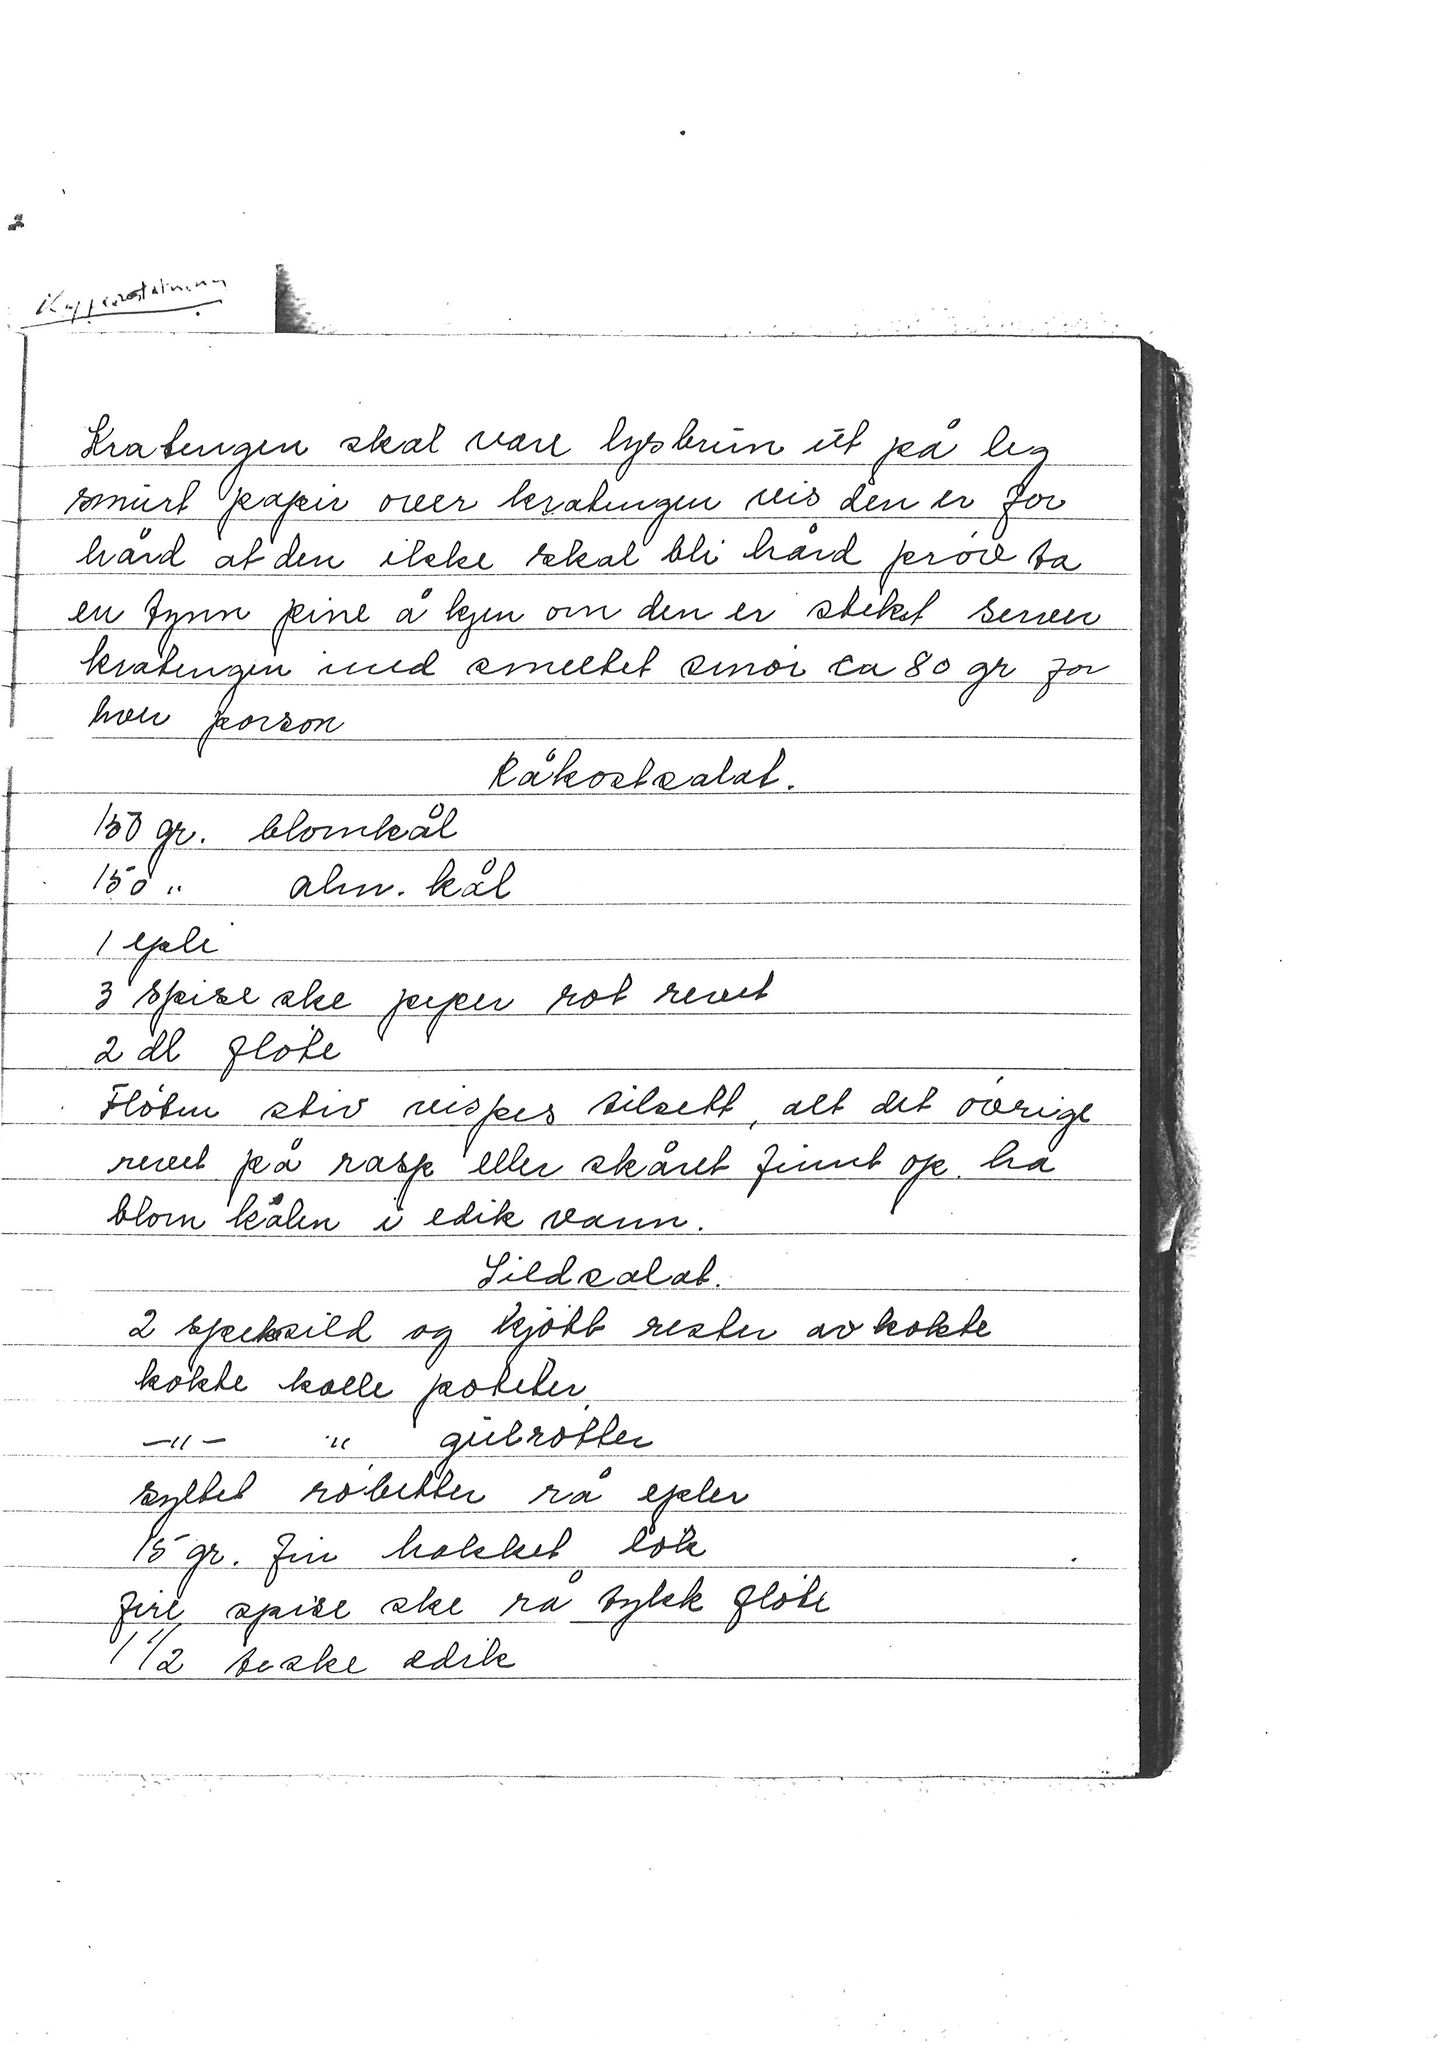 Kratengen skal vare lysbrun ut på leg
smurt papir over kratengen vis den er for
hård at den ikke skal bli hård pröv ta
en tynn pine å kjen om den er stekt server
kratengen med smeltet smör ca 80 gr for
hver person
Råkostsalat.
150 gr. blomkål
150 " alm. kål
1 eple
3 spise ske peper rot revet
2 dl flöte
Flöten stiv vispes tilsett, alt det övrige
revet på rasp eller skåret finnt op. ha
blom kålen i edik vann.
Sildsalat.
2 spekesild og kjött rester av kokte
kokte kalle poteter
-"- " gulrötter
syltet röbetter rå epler
15 gr. fin hakket lök
fire spise ske rå tykk flöte
1 1/2 teske edik